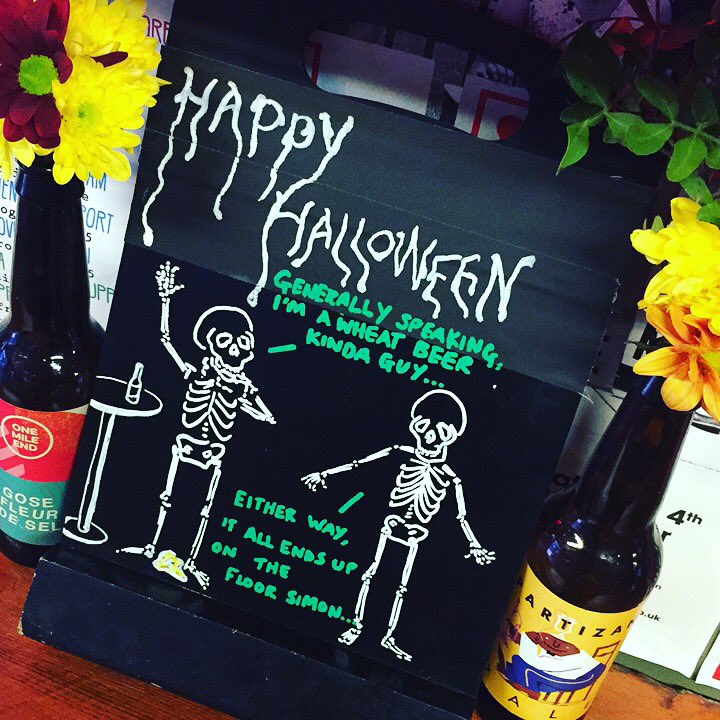 HAPPY
HALLOWEEN
GENERALLY SPEAKING,
I'M A WHEAT BEER
KINDA GUY...
EITHER WAY,
IT ALL ENDS UP
ON THE
FLOOR SIMON...
ONE
MILE
END
GOSE
FLEUR
DE SEL
ARTIZA
AL
4th
.uk
PORT